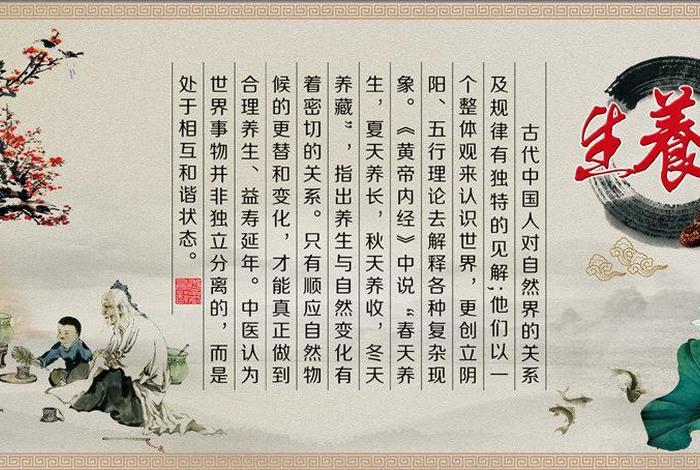 養生
古代中国人对自然界的关系
及规律有独特的见解;他们以一
个整体观来认识世界，更创立阴
阳、五行理论去解释各种复杂现
象。《黄帝内经》中说“春天养
生，夏天养长，秋天养收，冬天
养藏”，指出养生与自然变化有
着密切的关系。只有顺应自然物
候的更替和变化，才能真正做到
合理养生、益寿延年。中医认为
世界事物并非独立分离的，而是
处于相互和谐状态。